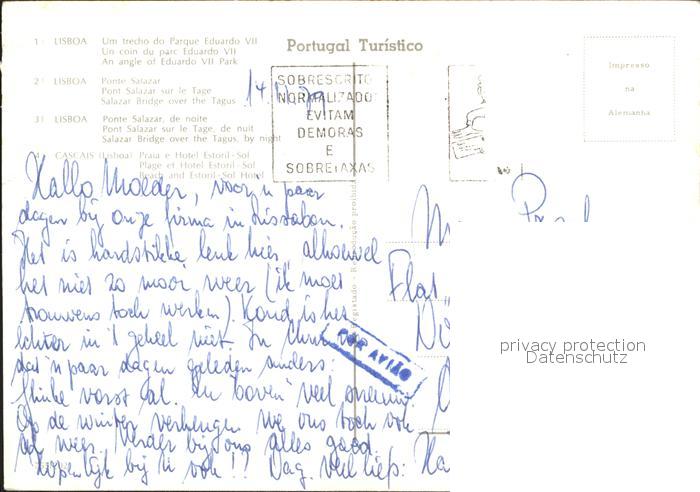 1) LISBOA Um trecho do Parque Eduardo VII
Un coin du parc Eduardo VII
An angle of Eduardo VII Park
2) LISBOA Ponte Salazar
Pont Salazar sur le Tage
Salazar Bridge over the Tagus
3) LISBOA Ponte Salazar, de noite
Pont Salazar sur le Tage, de nuit
Salazar Bridge over the Tagus, by night
4) CASCAIS (Lisboa) Praia e Hotel Estoril-Sol
Plage et Hotel Estoril-Sol
Beach and Estoril-Sol Hotel
Portugal Turístico
SOBRESCRITO
NORMALIZADO
EVITAM
DEMORAS
E
SOBRETAXAS
Impresso
na
Alemanha
Hallo Moeder, voor 'n paar
dagen bij onze firma in Lissabon.
Het is hardstikke leuk hier, alhoewel
het niet zo mooi weer (ik moet
trouwens toch werken). Koud is het
echter in 't geheel niet. In
dat 'n paar dagen geleden anders:
flinke vorst al. En boven veel sneeuw.
Op de winter verheugen we ons toch ook
al weer. Verder bij ons alles goed.
Hopenlijk bij U ook!! Dag. Veel liefs:
POR AVIÃO
Flat
privacy protection
Datenschutz